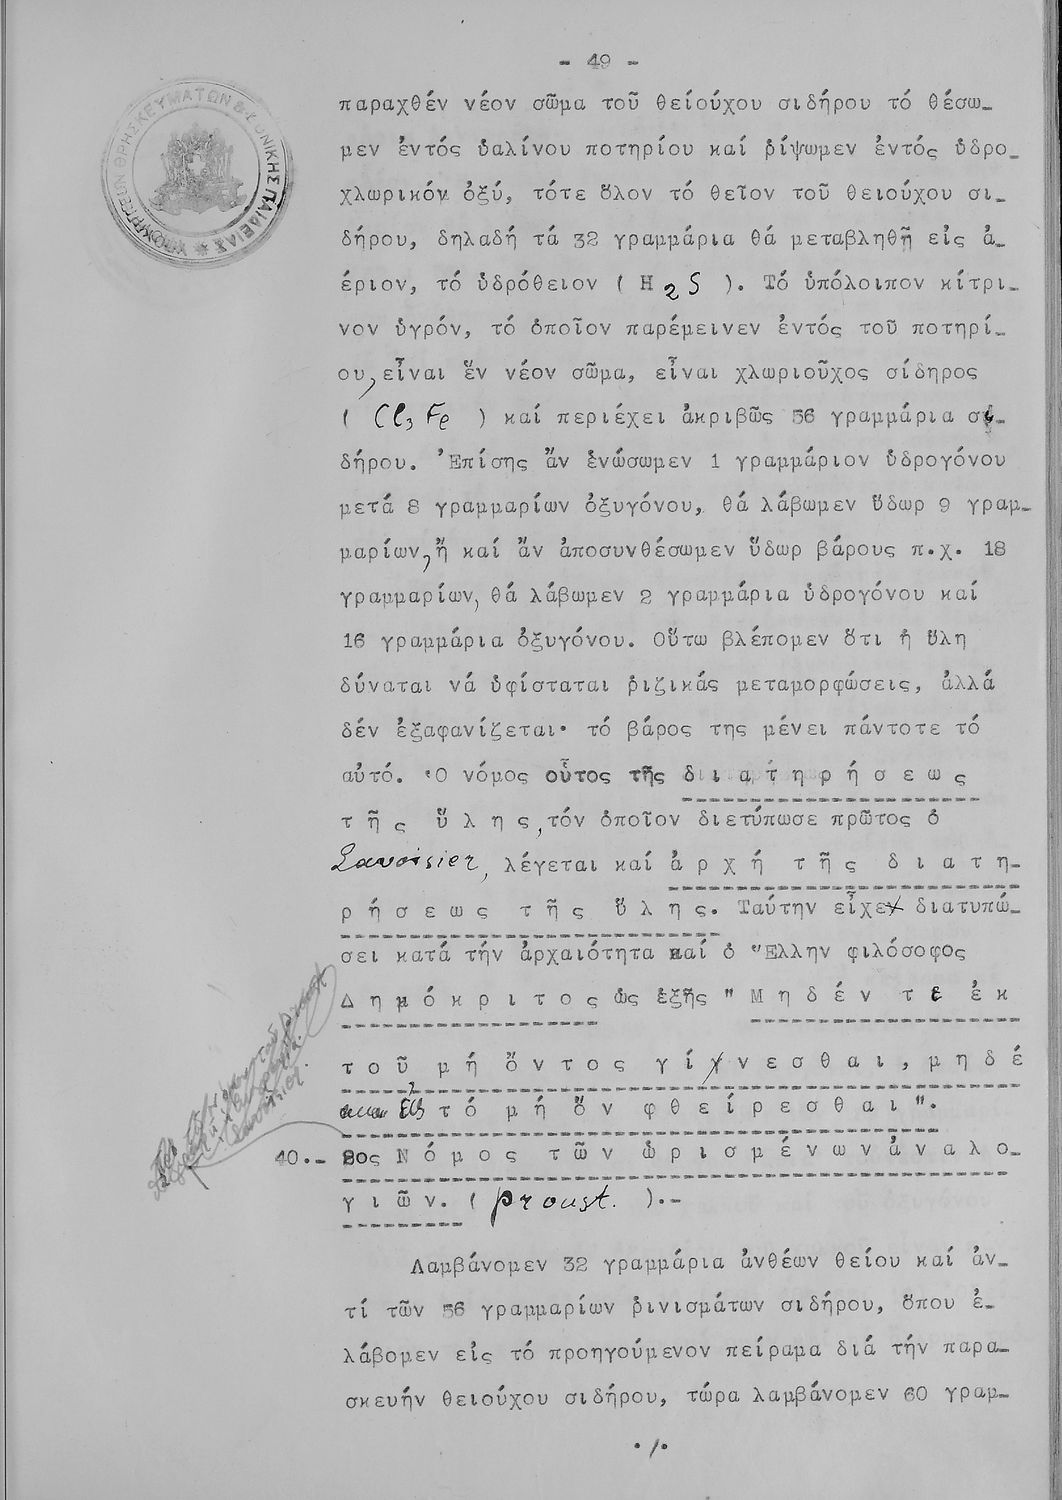 - 49 -
ΥΠΟΥΡΓΕΙΟΝ ΘΡΗΣΚΕΥΜΑΤΩΝ & ΕΘΝΙΚΗΣ ΠΑΙΔΕΙΑΣ
παραχθέν νέον σῶμα τοῦ θειούχου σιδήρου τό θέσω-
μεν ἐντός ὑαλίνου ποτηρίου καί ῥίψωμεν ἐντός ὑδρο-
χλωρικόν ὀξύ, τότε ὅλον τό θεῖον τοῦ θειούχου σι-
δήρου, δηλαδή τά 32 γραμμάρια θά μεταβληθῇ εἰς ἀ-
έριον, τό ὑδρόθειον ( H2S ). Τό ὑπόλοιπον κίτρι-
νον ὑγρόν, τό ὁποῖον παρέμεινεν ἐντός τοῦ ποτηρί-
ου, εἶναι ἕν νέον σῶμα, εἶναι χλωριοῦχος σίδηρος
( Cl3 Fe ) καί περιέχει ἀκριβῶς 56 γραμμάρια σι-
δήρου. Ἐπίσης ἄν ἑνώσωμεν 1 γραμμάριον ὑδρογόνου
μετά 8 γραμμαρίων ὀξυγόνου, θά λάβωμεν ὕδωρ 9 γραμ-
μαρίων, ἤ καί ἄν ἀποσυνθέσωμεν ὕδωρ βάρους π.χ. 18
γραμμαρίων, θά λάβωμεν 2 γραμμάρια ὑδρογόνου καί
16 γραμμάρια ὀξυγόνου. Οὕτω βλέπομεν ὅτι ἡ ὕλη
δύναται νά ὑφίσταται ῥιζικάς μεταμορφώσεις, ἀλλά
δέν ἐξαφανίζεται· τό βάρος της μένει πάντοτε τό
αὐτό. Ὁ νόμος οὗτος τῆς διατηρήσεως
τῆς ὕλης, τόν ὁποῖον διετύπωσε πρῶτος ὁ
Lavoisier, λέγεται καί ἀρχή τῆς διατη-
ρήσεως τῆς ὕλης. Ταύτην εἶχε διατυπώ-
σει κατά τήν ἀρχαιότητα καί ὁ Ἕλλην φιλόσοφος
Δημόκριτος ὡς ἑξῆς "Μηδέν τε ἐκ
τοῦ μή ὄντος γίνεσθαι, μηδέ
εἰς τό μή ὄν φθείρεσθαι".
40.- 2ος Νόμος τῶν ὡρισμένων ἀναλο-
γιῶν. ( Proust. ).-
Λαμβάνομεν 32 γραμμάρια ἀνθέων θείου καί ἀν-
τί τῶν 56 γραμμαρίων ῥινισμάτων σιδήρου, ὅπου ἐ-
λάβομεν εἰς τό προηγούμενον πείραμα διά τήν παρα-
σκευήν θειούχου σιδήρου, τώρα λαμβάνομεν 60 γραμ-
./.